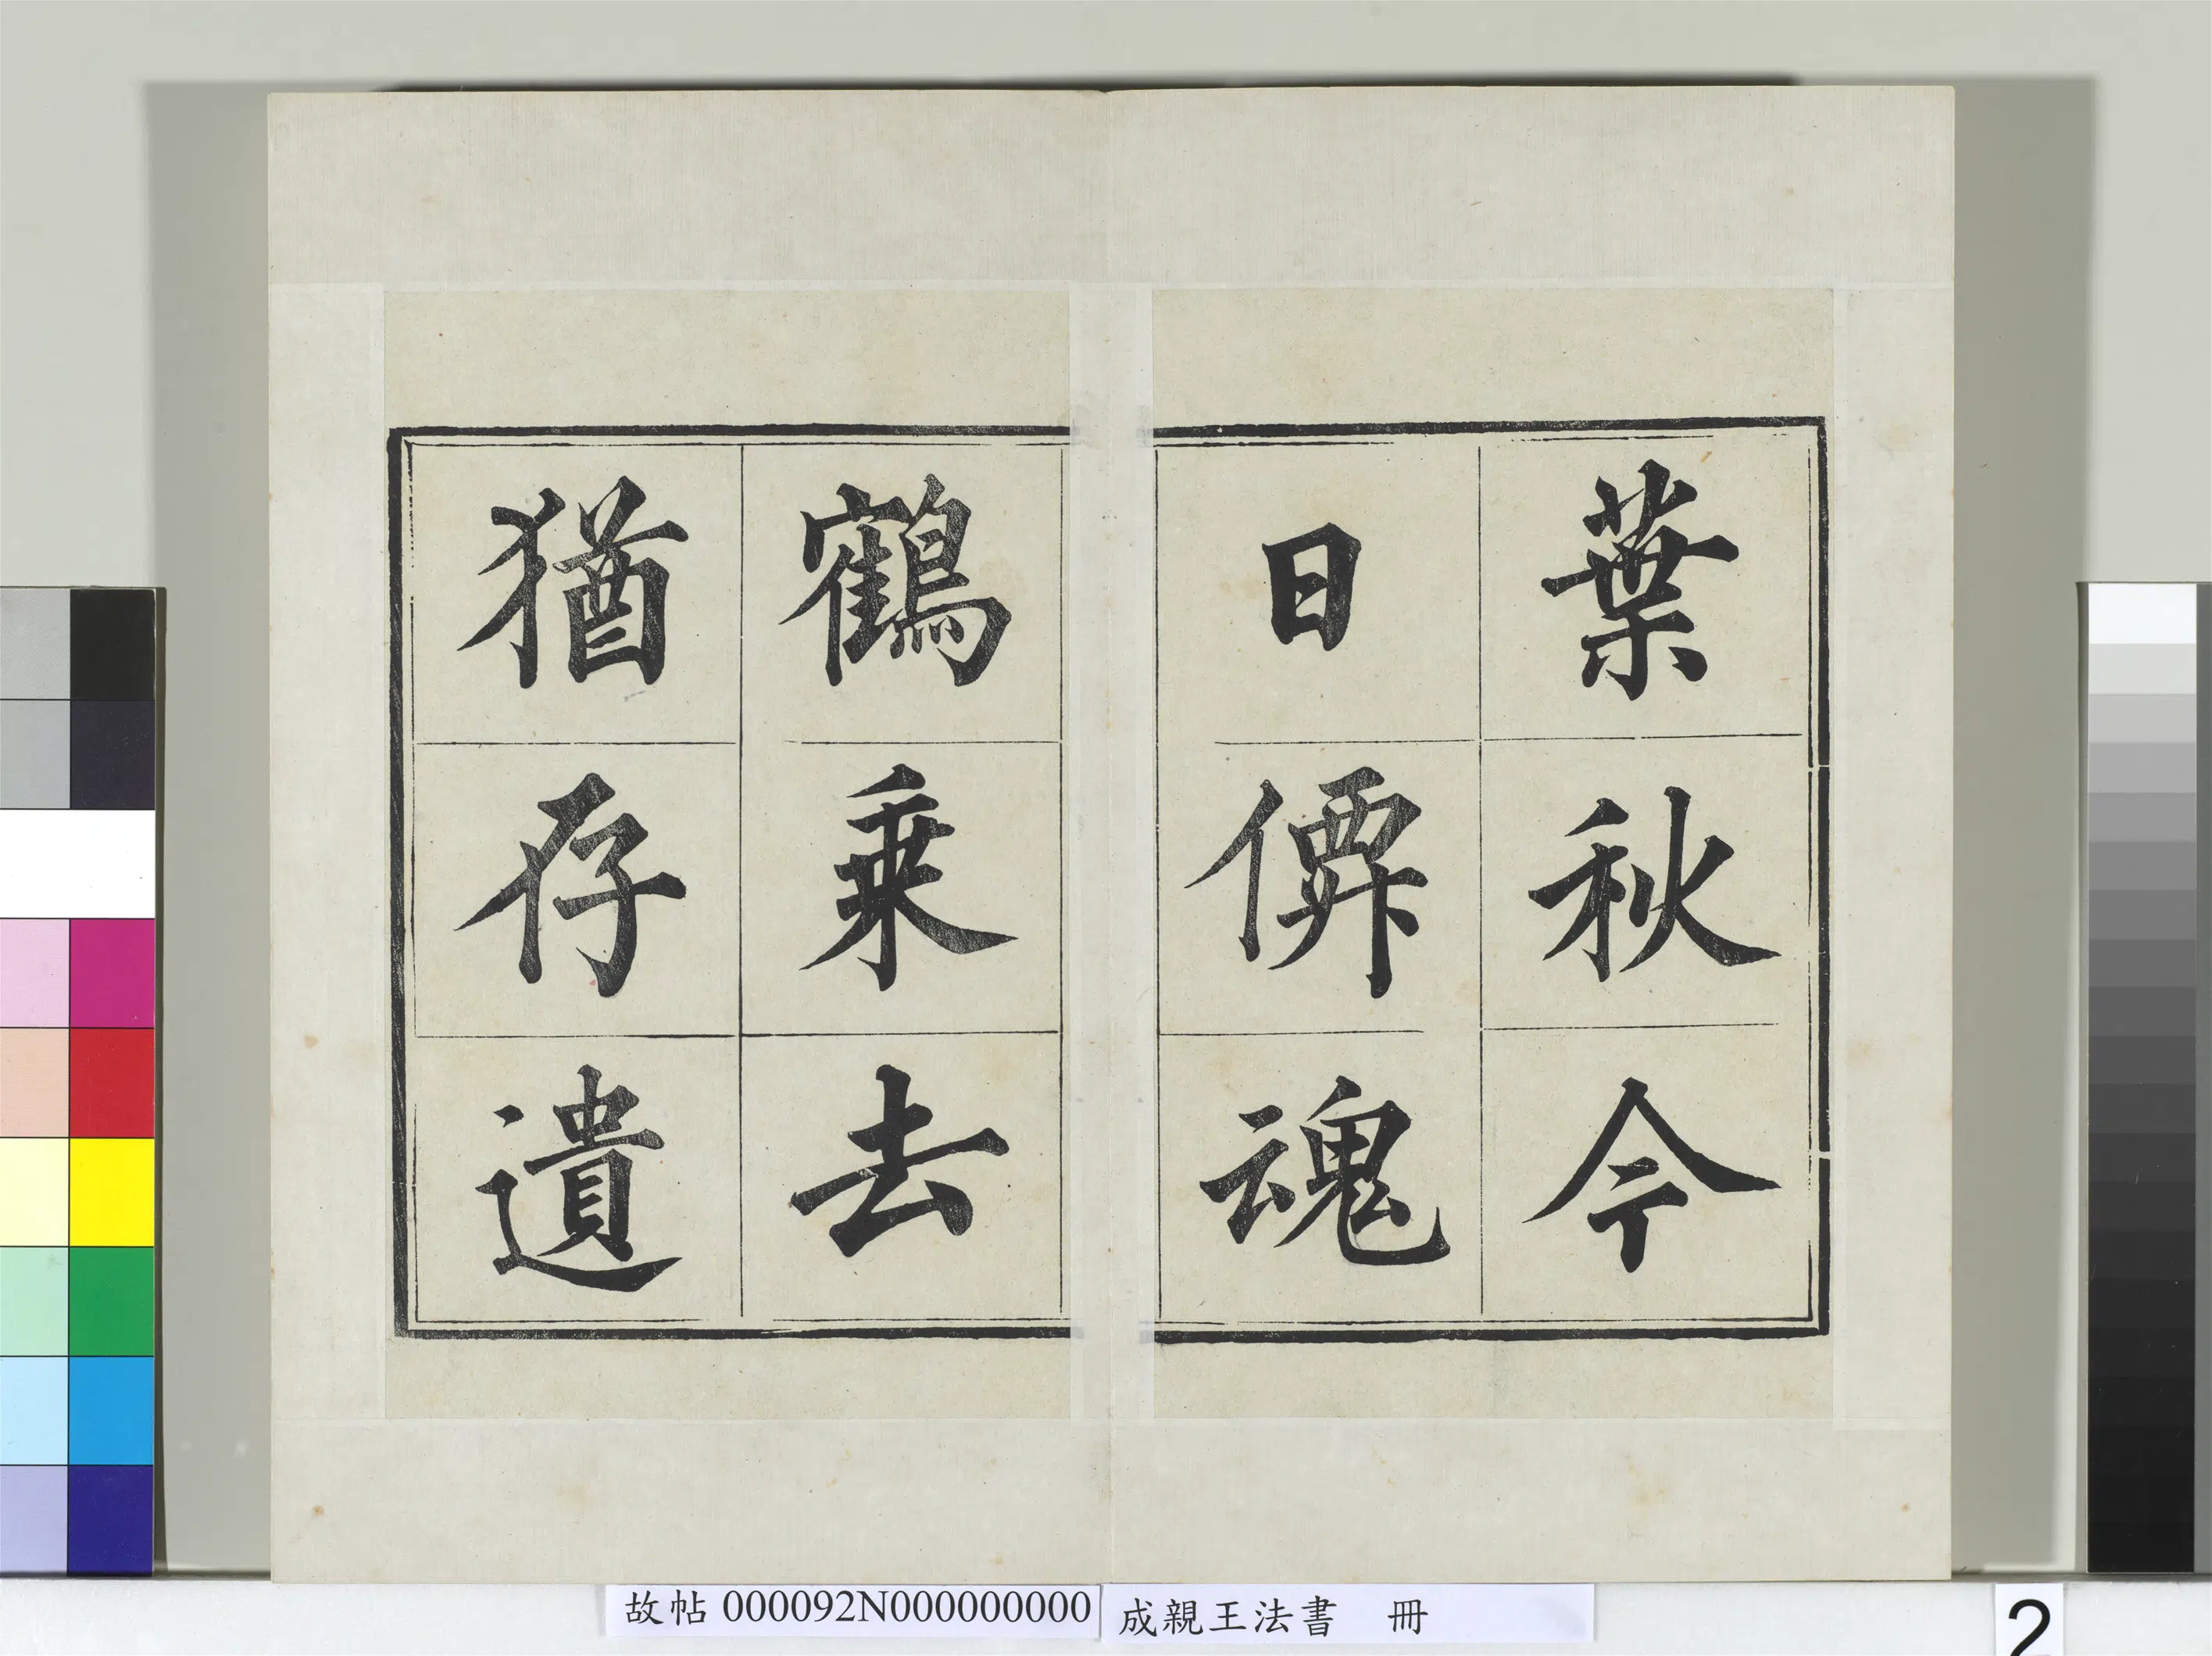 葉秋今
日僊魂
鶴乗去
猶存遺
故帖 000092N000000000
成親王法書 冊
2